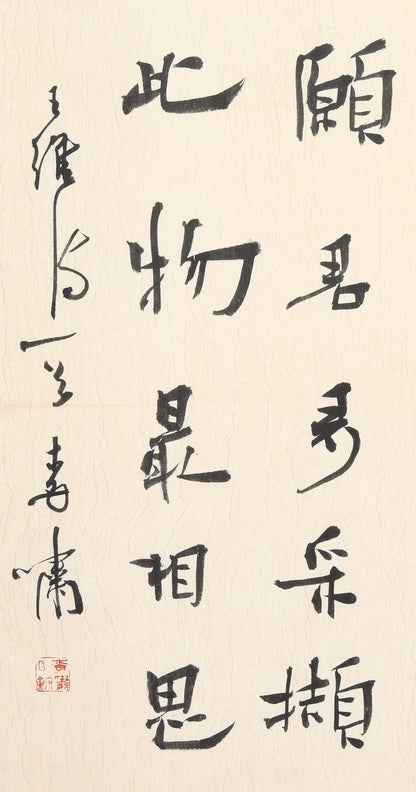 願君多采擷
此物最相思
王維詩一首 壽嘯